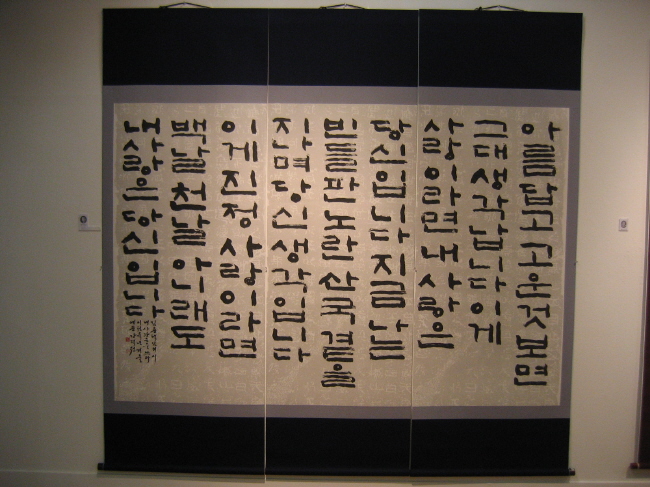 아름답고 고운 것 보면
그대 생각납니다 이게
사랑이라면 내 사랑은
당신입니다 지금 나는
빈 들판 노란 산국 곁을
지나며 당신 생각입니다
이게 진정 사랑이라면
백날 천날 아니래도
내 사랑은 당신입니다